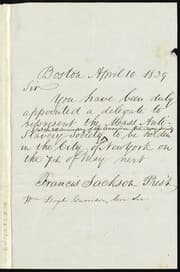 Boston April 10. 1839
Sir
You have been duly
appointed a delegate to
represent the Mass. Anti-
at the anniversary of the American Anti Slavery Society
Slavery Society to be holden
in the City of New York on
the 7th of May next
Francis Jackson Pres't
Wm Lloyd Garrison Cor. Sec